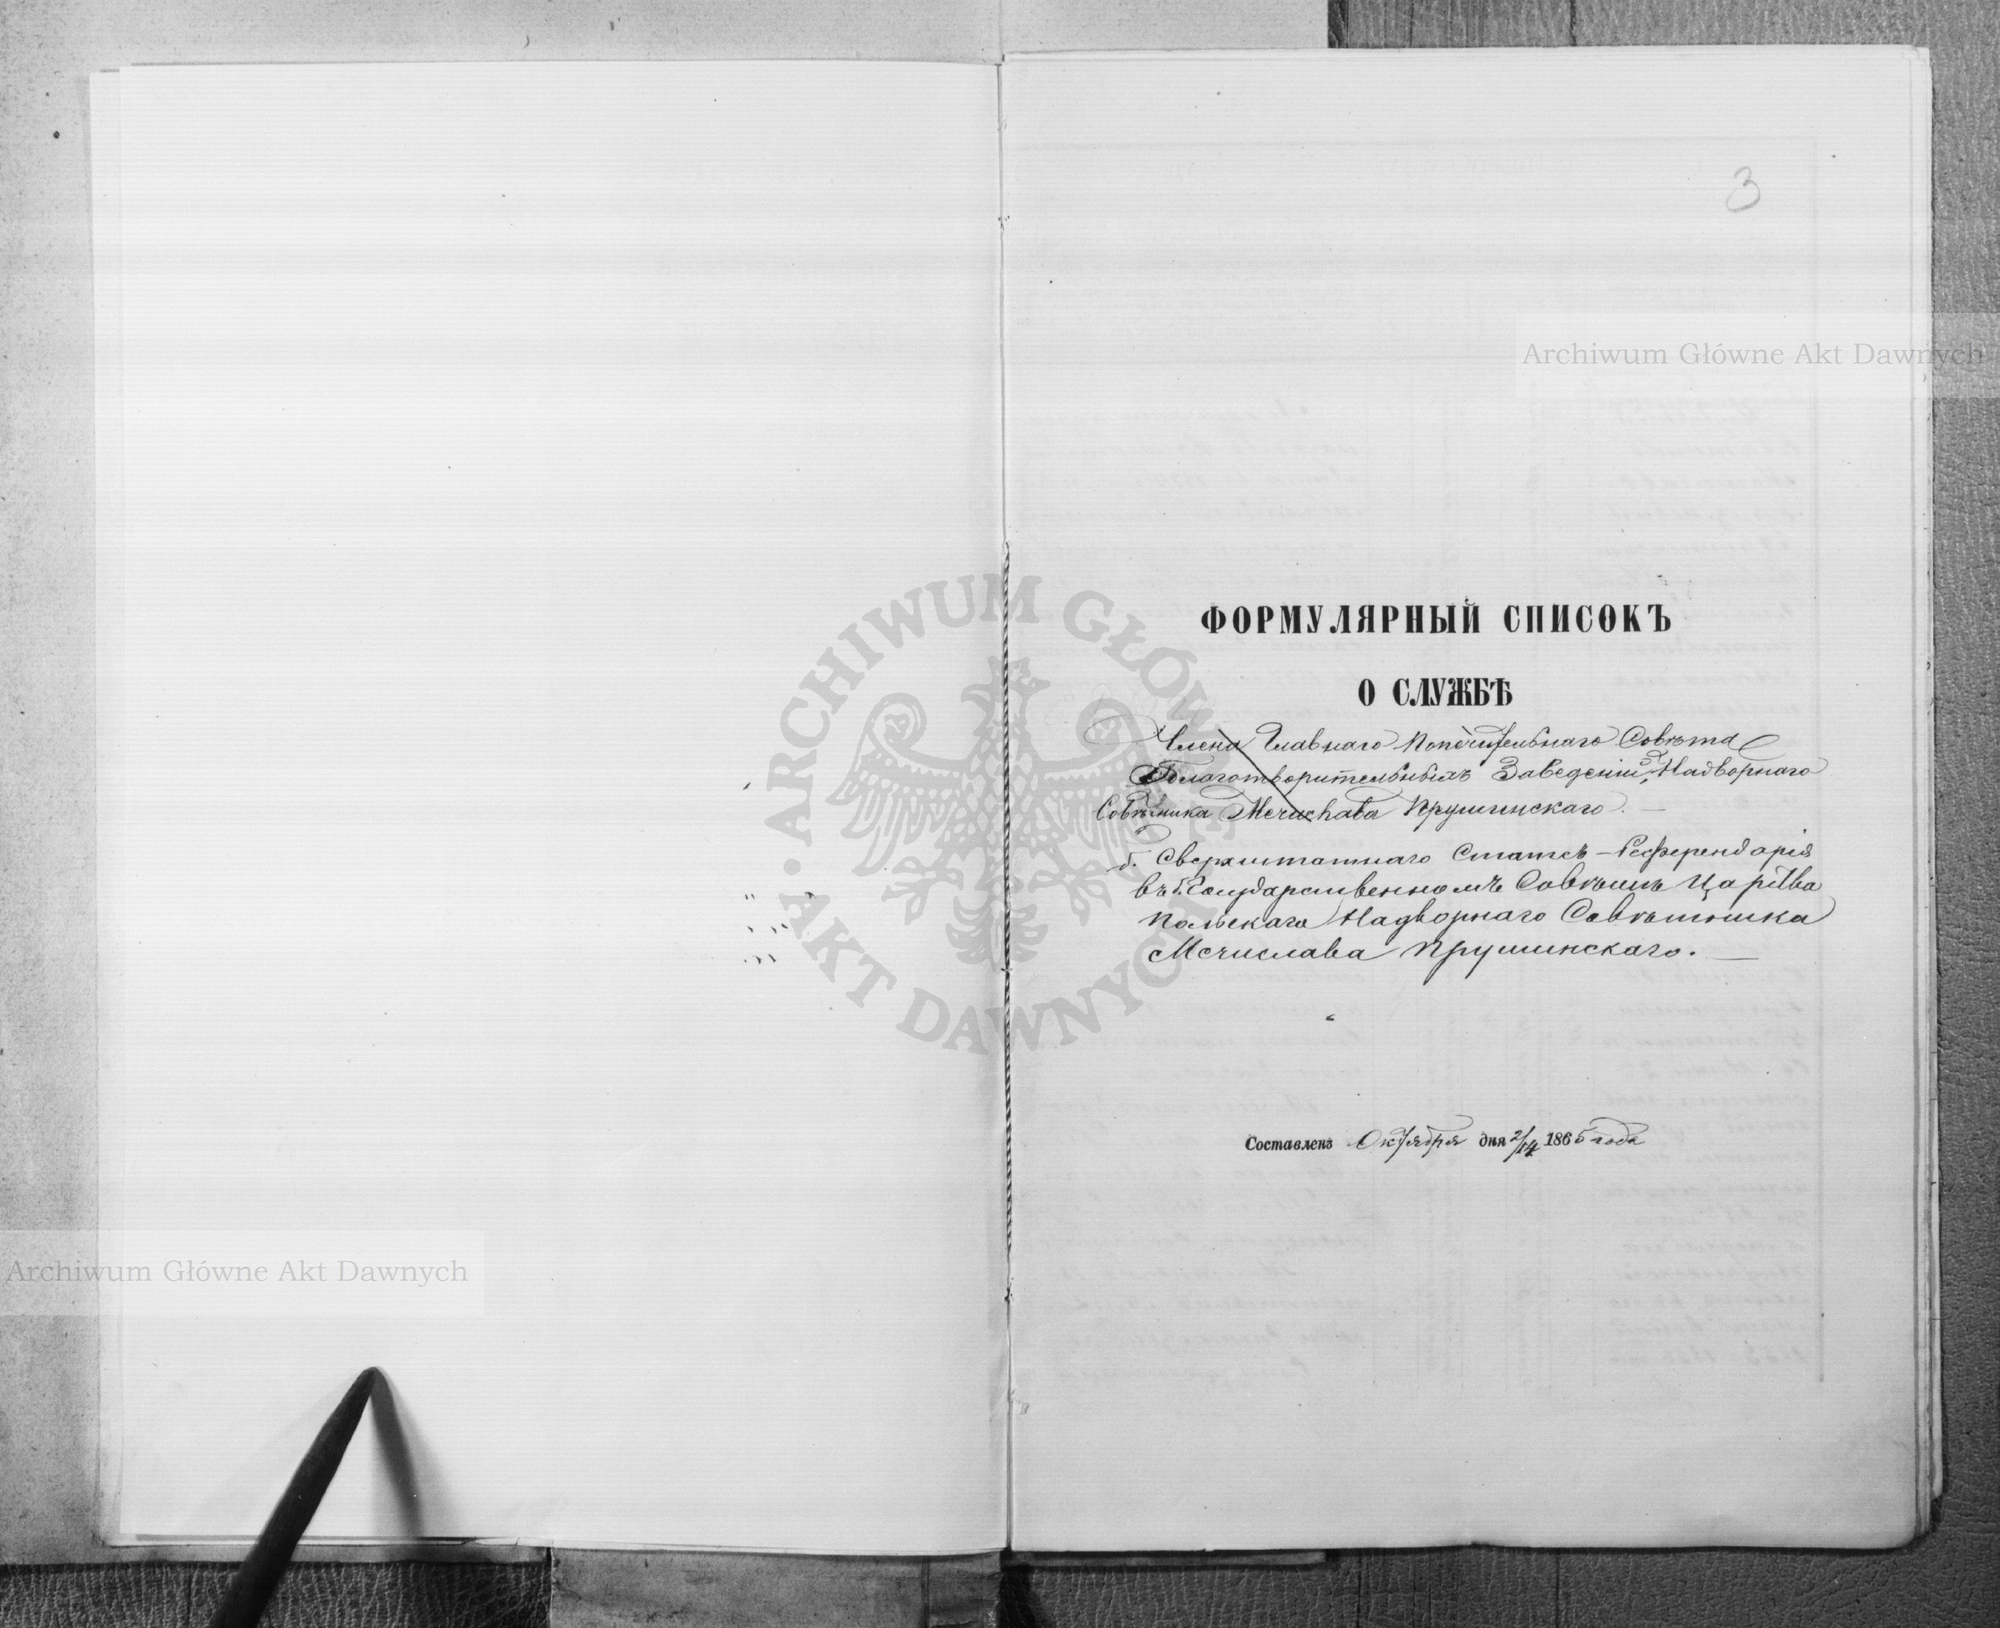 3
Archiwum Główne Akt Dawnych
ФОРМУЛЯРНЫЙ СПИСОКЪ
О СЛУЖБѢ
Члена Главнаго Попечительнаго Совѣта
Благотворительныхъ Заведеній, Надворнаго
Совѣтника Мечислава Прушинскаго. —
б. Сверхштатнаго Статсъ-Референдарія
въ б. Государственномъ Совѣтѣ Царства
Польскаго Надворнаго Совѣтника
Мечислава Прушинскаго. —
Составленъ Октября дня 2/14 1865 года
Archiwum Główne Akt Dawnych
ARCHIWUM GŁÓWNE AKT DAWNYCH